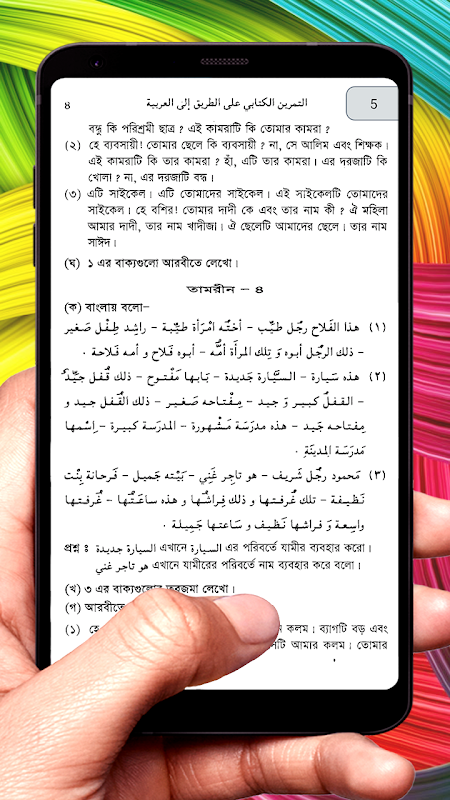 ٤ التمرين الكتابي على الطريق إلى العربية 5
বন্ধু কি পরিশ্রমী ছাত্র ? এই কামরাটি কি তোমার কামরা ?
(২) হে ব্যবসায়ী! তোমার ছেলে কি ব্যবসায়ী ? না, সে আলিম এবং শিক্ষক।
এই কামরাটি কি তার কামরা ? হাঁ, এটি তার কামরা। এর দরজাটি কি
খোলা ? না, এর দরজাটি বন্ধ।
(৩) এটি সাইকেল। এটি তোমাদের সাইকেল। এই সাইকেলটি তোমাদের
সাইকেল। হে বশির! তোমার দাদী কে এবং তার নাম কী ? ঐ মহিলা
আমার দাদী, তার নাম খাদীজা। ঐ ছেলেটি আমাদের ছেলে। তার নাম
সাঈদ।
(ঘ) ১ এর বাক্যগুলো আরবীতে লেখো।
তামরীন – ৪
(ক) বাংলায় বলো–
(١) هذا الفَلاح رجُل طيِّب – أختُه امْرَأة طيِّبة – راشِد طِفْل صَغير
– ذلك الرجُل أبوه وَ تِلك المرأَة أمُّه – أبوه فَلاح و أمه فَلاحة .
(٢) هذه سَيارة – السيَّارة جَديدة – بَابها مَفْتوح – ذلك قُفل جيِّد
– القفلُ كبير وَ جيد – مِفْتاحه صَغير – ذلك القُفل جيد و
مِفتاحه جَيد – هذه مدرَسَة مَشْهورة – المدرَسة كبيرة – اِسْمها
مَدرَسَة المدينَةِ .
(٣) مَحمود رجُل شَريف – هو تاجِر غَنِي – بَيْته جَميل – فَرحانة بِنْت
نَظيفة – تلك غُرفتها و ذلك فِراشُها و هذه ساعَتُها – غُرفتها
واسِعة وَ فراشها نَظيف و سَاعتها جَميلة .
প্রশ্ন ঃ السيارة جديدة এখানে السيارة এর পরিবর্তে যামীর ব্যবহার করো।
هو تاجر غني এখানে যামীরের পরিবর্তে নাম ব্যবহার করে বলো।
(খ) ৩ এর বাক্যগুলোর তরজমা লেখো।
(গ) আরবীতে
(১) হে কলম ; ব্যাগটি বড় এবং
আমার কলম ; তোমার